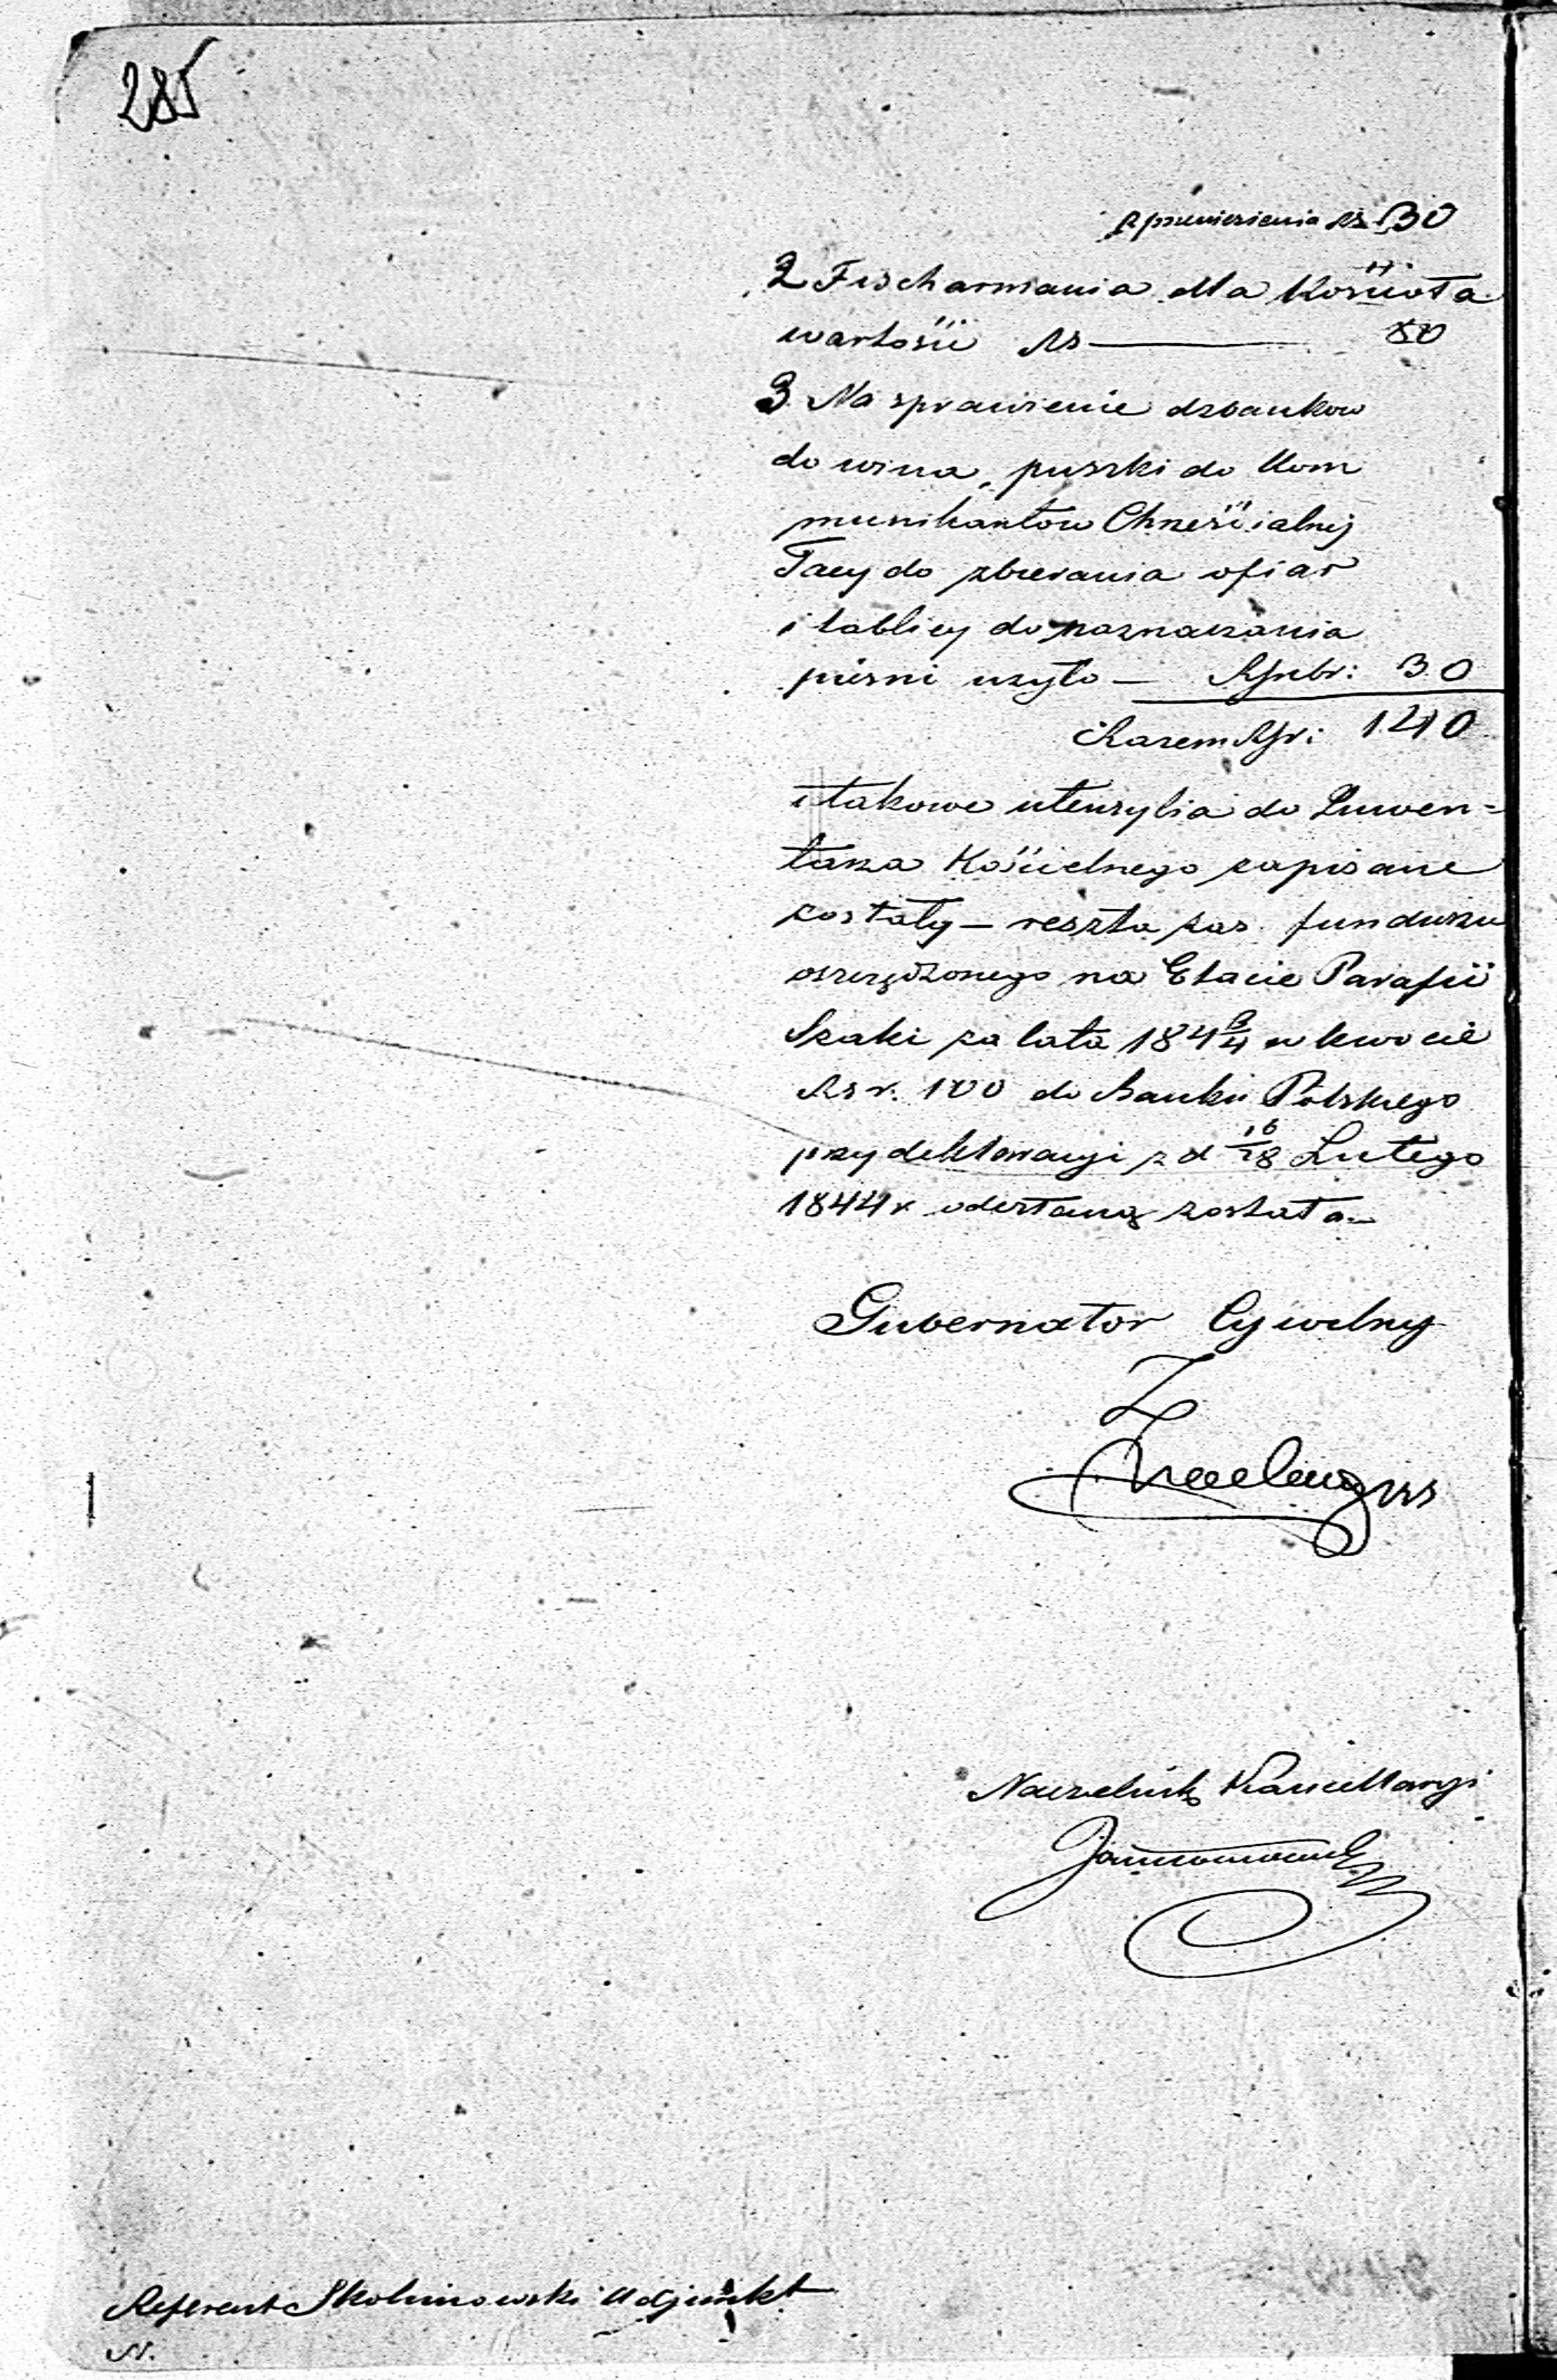 285
z przeniesienia RS 30
2 Fisharmania dla Kościoła
wartości RS — 80
3. Na sprawienie dzbankow
do wina, puszki do Kom
munikantow Chrzcialnej
Tacy do zbierania ofiar
i tablicy do naznaczania
pieśni użyto — Rsrbr: 30
Razem Rsr: 140
i takowe utensylia do Inwen=
tarza Kościelnego zapisane
zostały — reszta zas funduszu
oszczędzonego na Etacie Parafii
Szaki za lata 184 3/4 w kwocie
Rsr. 100 do Banku Polskiego
przy deklaracyi z d 16/28 Lutego
1844 r odesłaną została.
Gubernator Cywilny
Naczelnik Kancellaryi
Referent Skolimowski Adjunkt
N.